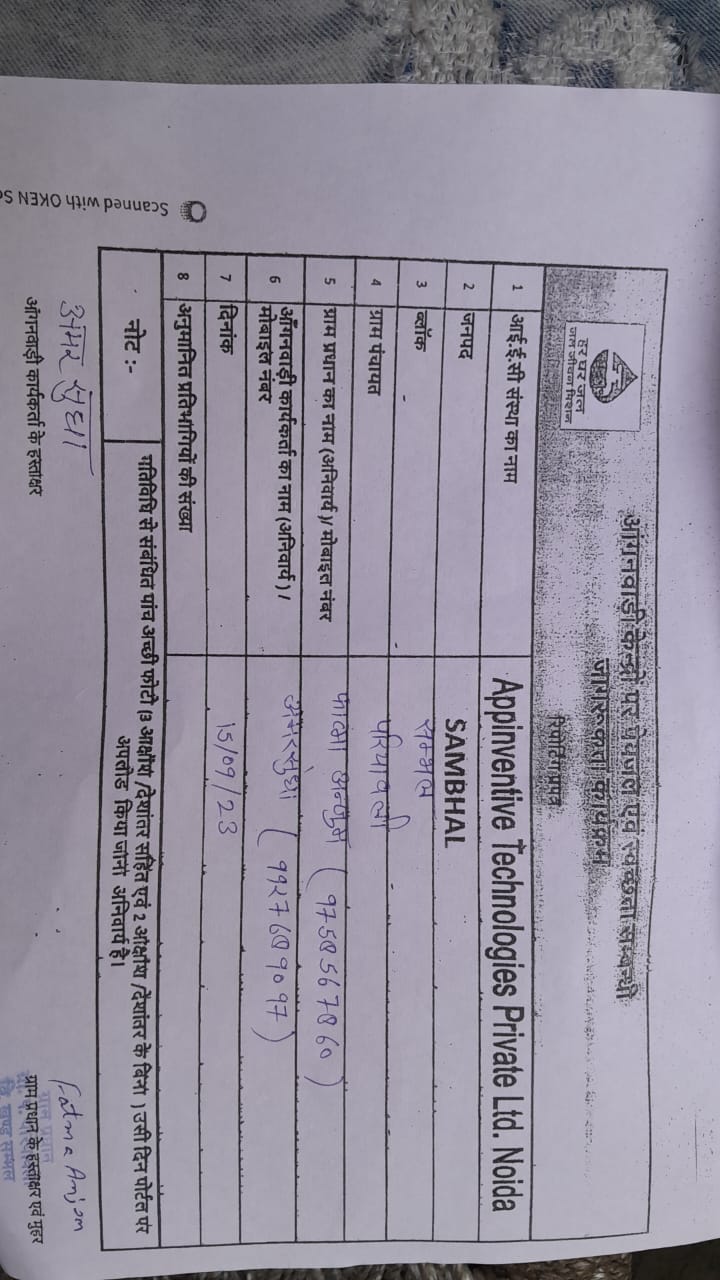 हर घर जल
जल जीवन मिशन
आंगनवाड़ी केन्द्रों पर पेयजल एवं स्वच्छता सम्बन्धी
जागरूकता कार्यक्रम
रिपोर्टिंग प्रपत्र
1 आई.ई.सी संस्था का नाम Appinventive Technologies Private Ltd. Noida
2 जनपद SAMBHAL
3 ब्लॉक सम्भल
4 ग्राम पंचायत
5 ग्राम प्रधान का नाम (अनिवार्य )/ मोबाइल नंबर
6 आँगनवाड़ी कार्यकर्ता का नाम (अनिवार्य ) /
मोबाइल नंबर
7 दिनांक 15/09/23
8 अनुमानित प्रतिभागियों की संख्या
नोट :- गतिविधि से संबंधित पांच अच्छी फोटो (3 आक्षांश /देशांतर सहित एवं 2 आंक्षांश /देशांतर के बिना ) उसी दिन पोर्टल पर
अपलोड किया जाना अनिवार्य है।
अमर सुधा Fatma Anjom
आंगनवाड़ी कार्यकर्ता के हस्ताक्षर ग्राम प्रधान के हस्ताक्षर एवं मुहर
ग्राम प्रधान
Scanned with OKEN